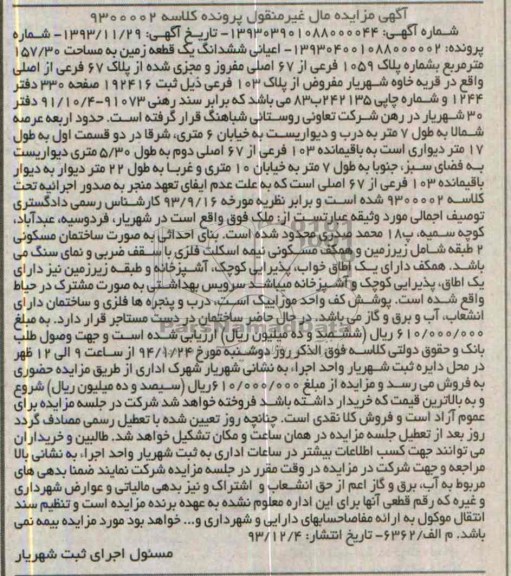 آگهی مزایده مال غیرمنقول پرونده کلاسه ۹۳۰۰۰۰۲
شماره آگهی: ۱۳۹۳۰۳۹۰۱۰۸۸۰۰۰۰۴۴- تاریخ آگهی: ۱۳۹۳/۱۱/۲۹- شماره
پرونده: ۱۳۹۳۰۴۰۰۱۰۸۸۰۰۰۰۰۲- اعیانی ششدانگ یک قطعه زمین به مساحت ۱۵۷/۳۰
مترمربع بشماره پلاک ۱۰۵۹ فرعی از ۶۷ اصلی مفروز و مجزی شده از پلاک ۶۷ فرعی از اصلی
واقع در قریه خاوه شهریار مفروض از پلاک ۱۰۳ فرعی ذیل ثبت ۱۹۲۴۱۶ صفحه ۳۳۰ دفتر
۱۲۴۴ و شماره چاپی ۲۴۲۱۳۵ب۸۳ می باشد که برابر سند رهنی ۹۱۰۷۳-۹۱/۱۰/۴ دفتر
۳۰ شهریار در رهن شرکت تعاونی روستائی شباهنگ قرار گرفته است. حدود اربعه عرصه
شمالا به طول ۷ متر به درب و دیواریست به خیابان ۶ متری، شرقا در دو قسمت اول به طول
۱۷ متر دیواری است به باقیمانده ۱۰۳ فرعی از ۶۷ اصلی دوم به طول ۵/۳۰ متری دیواریست
به فضای سبز، جنوبا به طول ۷ متر به خیابان ۱۰ متری و غربا به طول ۲۲ متر دیوار به دیوار
باقیمانده ۱۰۳ فرعی از ۶۷ اصلی است که به علت عدم ایفای تعهد منجر به صدور اجرائیه تحت
کلاسه ۹۳۰۰۰۰۲ شده است و برابر نظریه مورخه ۹۳/۹/۱۶ کارشناس رسمی دادگستری
توصیف اجمالی مورد وثیقه عبارتست از: ملک فوق واقع است در شهریار، فردوسیه، عبدآباد،
کوچه سمیه، پ۱۸ محمد صدری محدود شده است. بنای احداثی به صورت ساختمان مسکونی
۲ طبقه شامل زیرزمین و همکف مسکونی نیمه اسکلت فلزی با سقف ضربی و نمای سنگ می
باشد. همکف دارای یک اطاق خواب، پذیرایی کوچک، آشپزخانه و طبقه زیرزمین نیز دارای
یک اطاق، پذیرایی کوچک و آشپزخانه میباشد سرویس بهداشتی به صورت مشترک در حیاط
واقع شده است. پوشش کف واحد موزاییک است، درب و پنجره ها فلزی و ساختمان دارای
انشعاب، آب و برق و گاز می باشد. در حال حاضر ساختمان در دست مستاجر قرار دارد. به مبلغ
۶۱۰/۰۰۰/۰۰۰ ریال (ششصد و ده میلیون ریال) ارزیابی شده است و جهت وصول طلب
بانک و حقوق دولتی کلاسه فوق الذکر روز دوشنبه مورخ ۹۴/۱/۲۴ از ساعت ۹ الی ۱۲ ظهر
در محل دایره ثبت شهریار واحد اجراء به نشانی شهریار شهرک اداری از طریق مزایده حضوری
به فروش می رسد و مزایده از مبلغ ۶۱۰/۰۰۰/۰۰۰ریال (سیصد و ده میلیون ریال) شروع
و به بالاترین قیمت که خریدار داشته باشد فروخته خواهد شد شرکت در جلسه مزایده برای
عموم آزاد است و فروش کلا نقدی است. چنانچه روز تعیین شده با تعطیل رسمی مصادف گردد
روز بعد از تعطیل جلسه مزایده در همان ساعت و مکان تشکیل خواهد شد. طالبین و خریداران
می توانند جهت کسب اطلاعات بیشتر در ساعات اداری به ثبت شهریار واحد اجراء به نشانی بالا
مراجعه و جهت شرکت در مزایده در وقت مقرر در جلسه مزایده شرکت نمایند ضمنا بدهی های
مربوط به آب، برق و گاز اعم از حق انشعاب و اشتراک و نیز بدهی مالیاتی و عوارض شهرداری
و غیره که رقم قطعی آنها برای این اداره معلوم نشده به عهده برنده مزایده است و تنظیم سند
انتقال موکول به ارائه مفاصاحسابهای دارایی و شهرداری و... خواهد بود مورد مزایده بیمه نمی
باشد. م الف/۶۳۶۲- تاریخ انتشار: ۹۳/۱۲/۴
مسئول اجرای ثبت شهریار